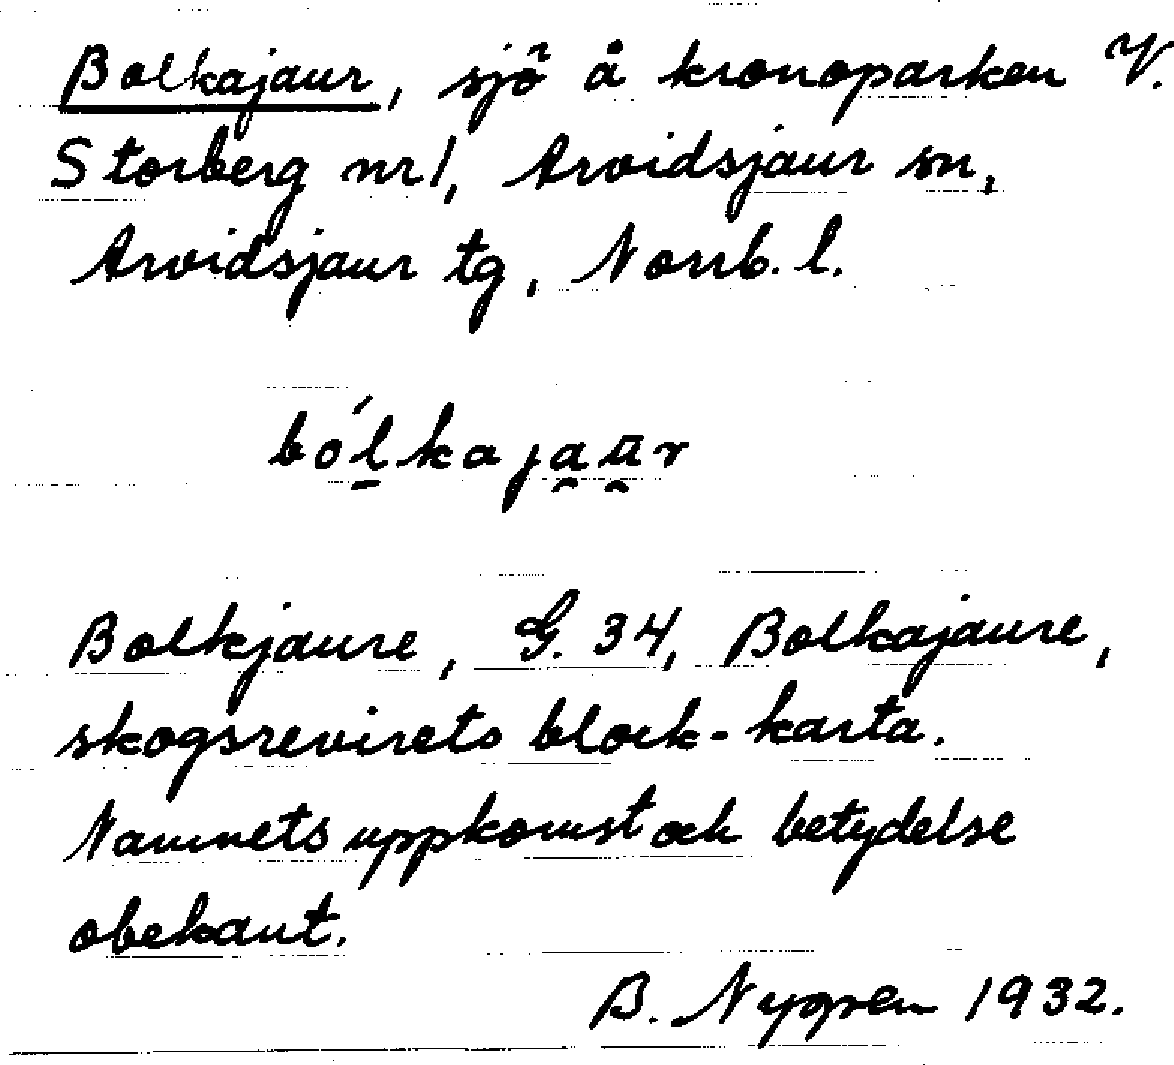 Bolkajaur, sjö å kronoparken V.
Storberg nr 1, Arvidsjaur sn,
Arvidsjaur tg, Norrb. l.
bólkajaur
Bolkjaure, G. 34, Bolkajaure,
skogsrevirets block-karta.
Namnets uppkomst och betydelse
obekant.
B. Nygren 1932.